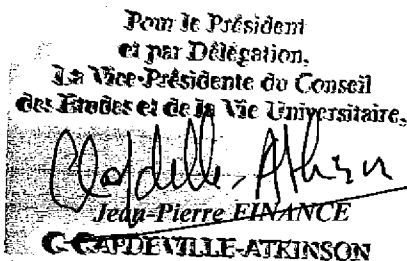 Pour le Président
et par Délégation,
La Vice-Présidente du Conseil
des Etudes et de la Vie Universitaire,
Capdeville-Atkinson
Jean-Pierre FINANCE
C-CAPDEVILLE-ATKINSON